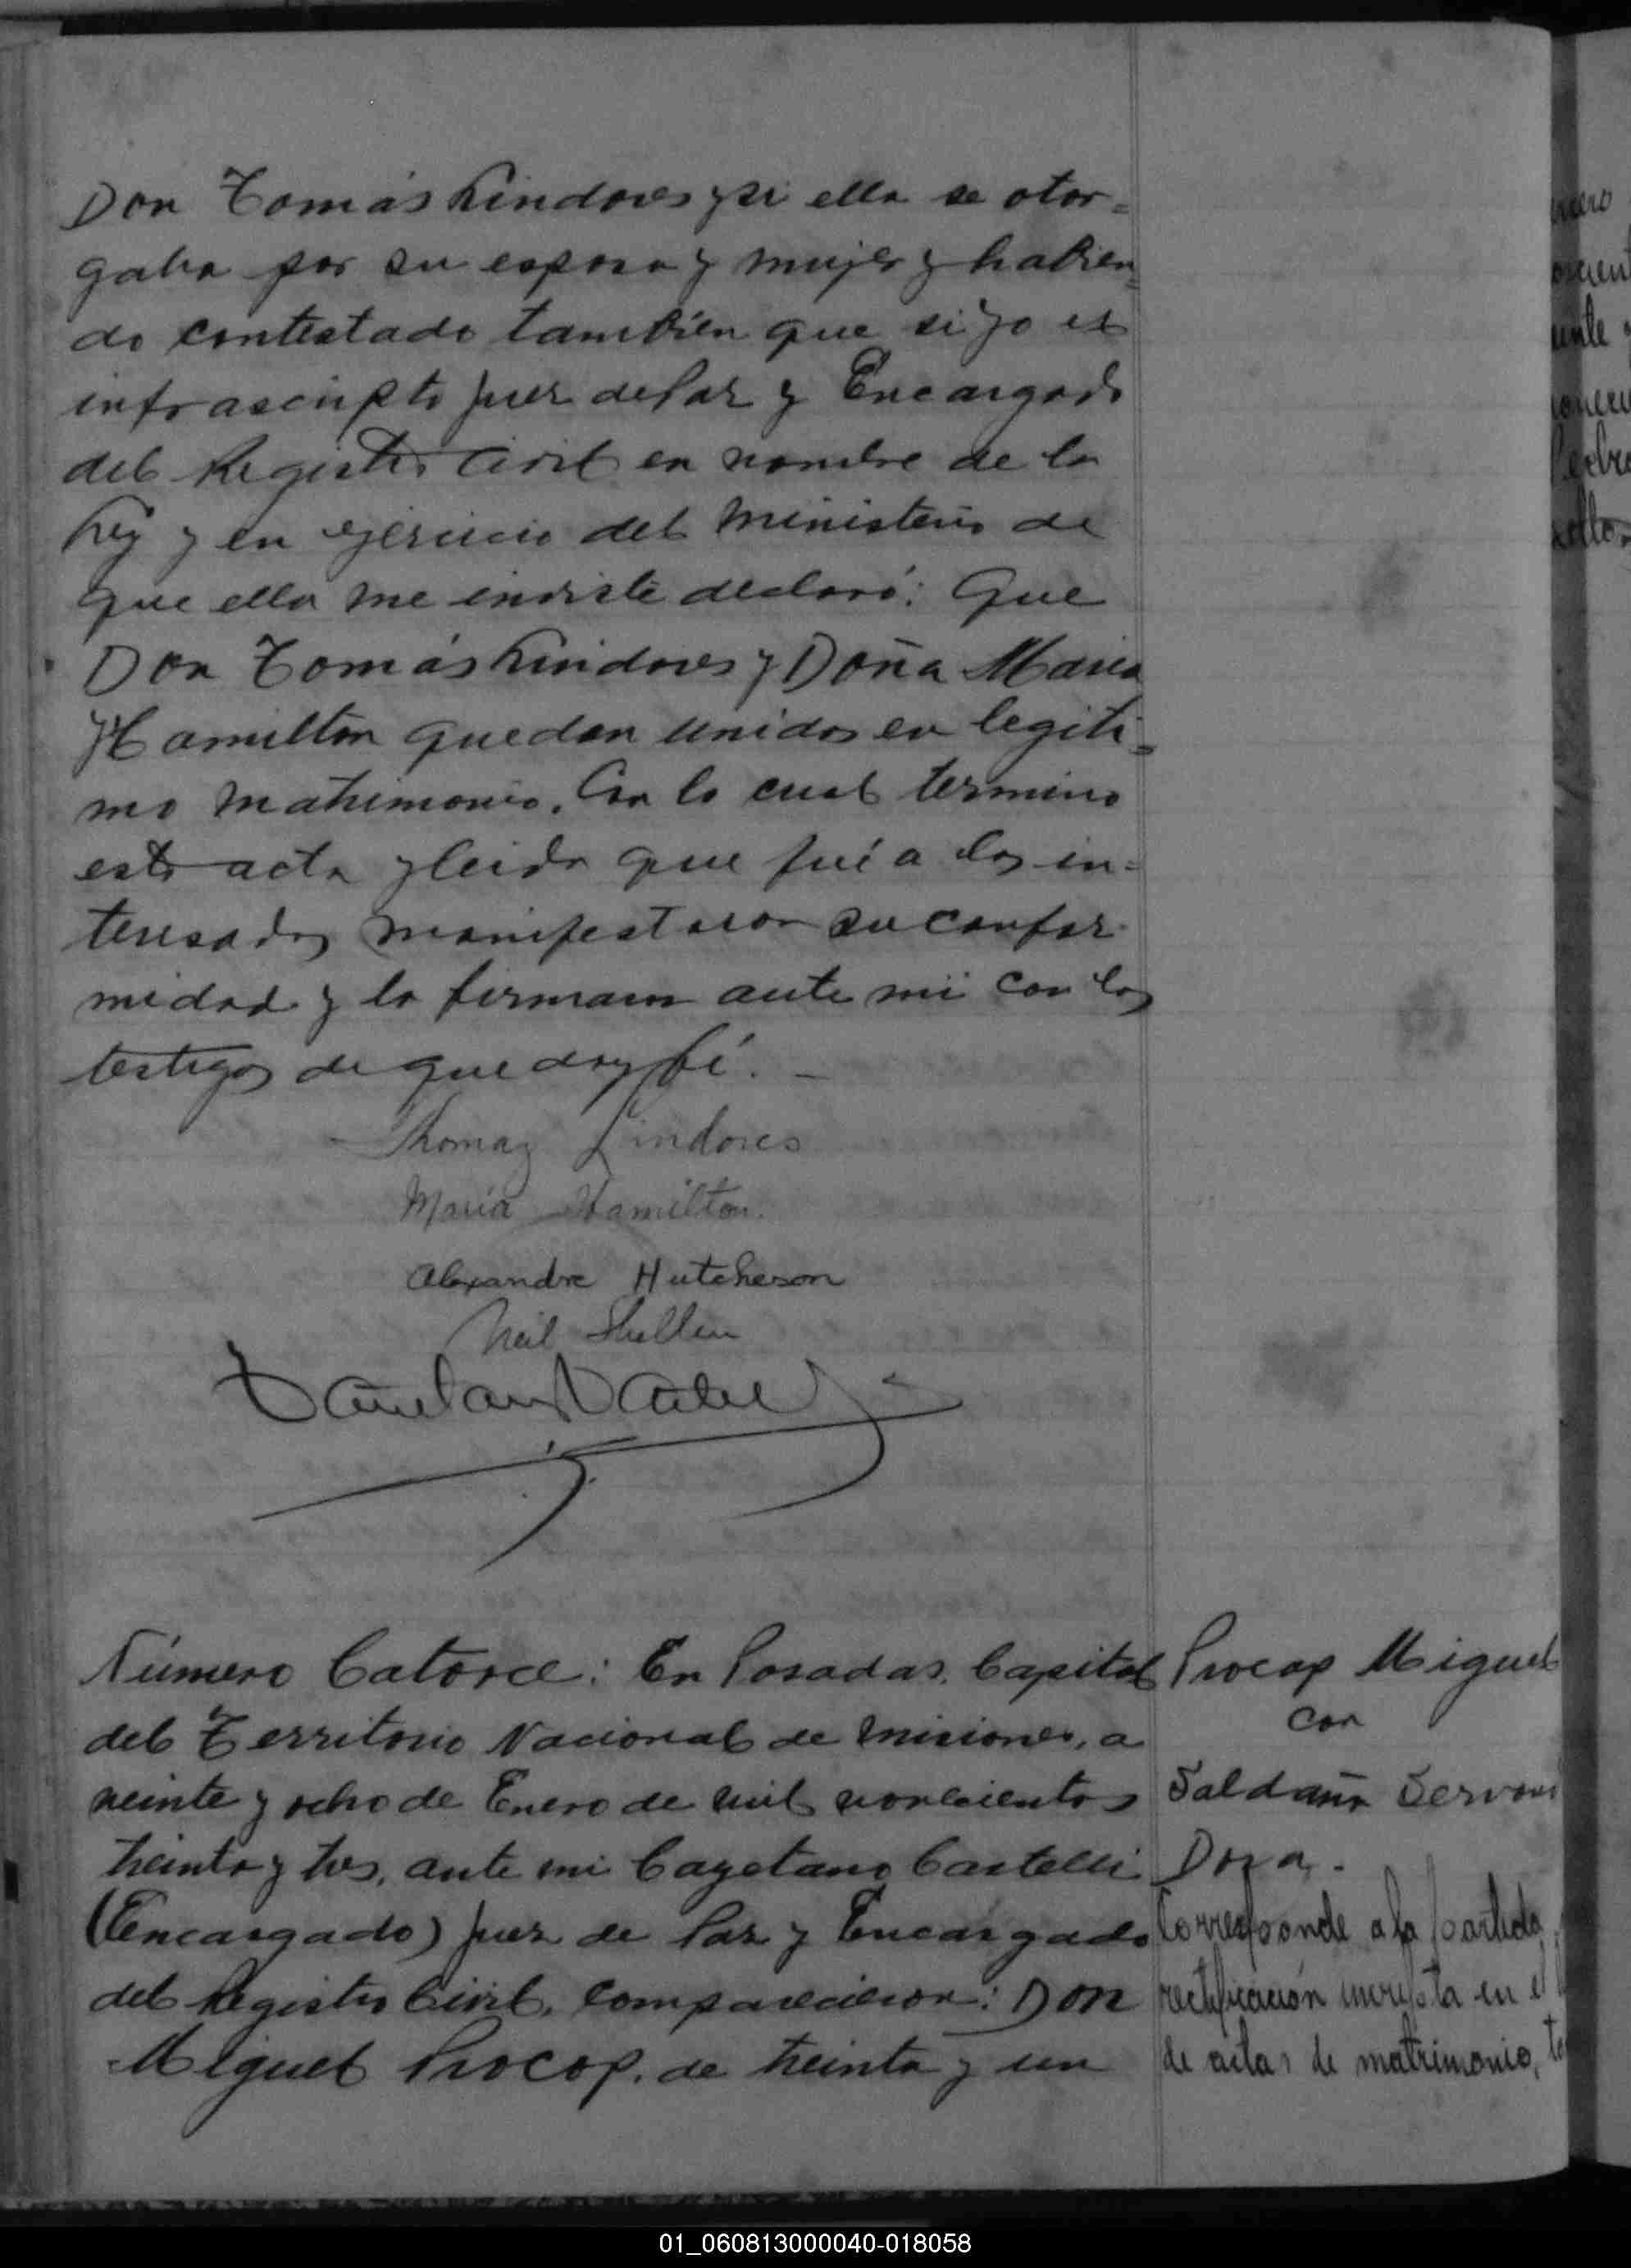 Don Tomás Lindores y si ella se otor=
gaba por su esposa y mujer y habien=
do contestado también que si yo el
infrascripto Juez de Paz y Encargado
del Registro Civil en nombre de la
Ley y en ejercicio del Ministerio de
que ella me inviste declaró: Que
Don Tomás Lindores y Doña Maria
Hamilton quedan unidos en legiti=
mo matrimonio. Con lo cual termino
esta acta y leida que fué a los in=
teresados manifestaron su confor
midad y la firmaron ante mi con los
testigos de que doy fé. —
Thomaz Lindores
Maria Hamilton.
Alexandre Hutcheson
Neil
Número Catorce: En Posadas, Capital
del Territorio Nacional de Misiones, a
veinte y ocho de Enero de mil novecientos
treinta y tres, ante mi Cayetano Castelli
(Encargado) Juez de Paz y Encargado
del Registro Civil, comparecieron: Don
Miguel Procop, de treinta y un
Procop Miguel
con
Saldaña
Dora.
Corresponde a la partida
rectificación inscripta en el
de actas de matrimonio,
01_060813000040-018058